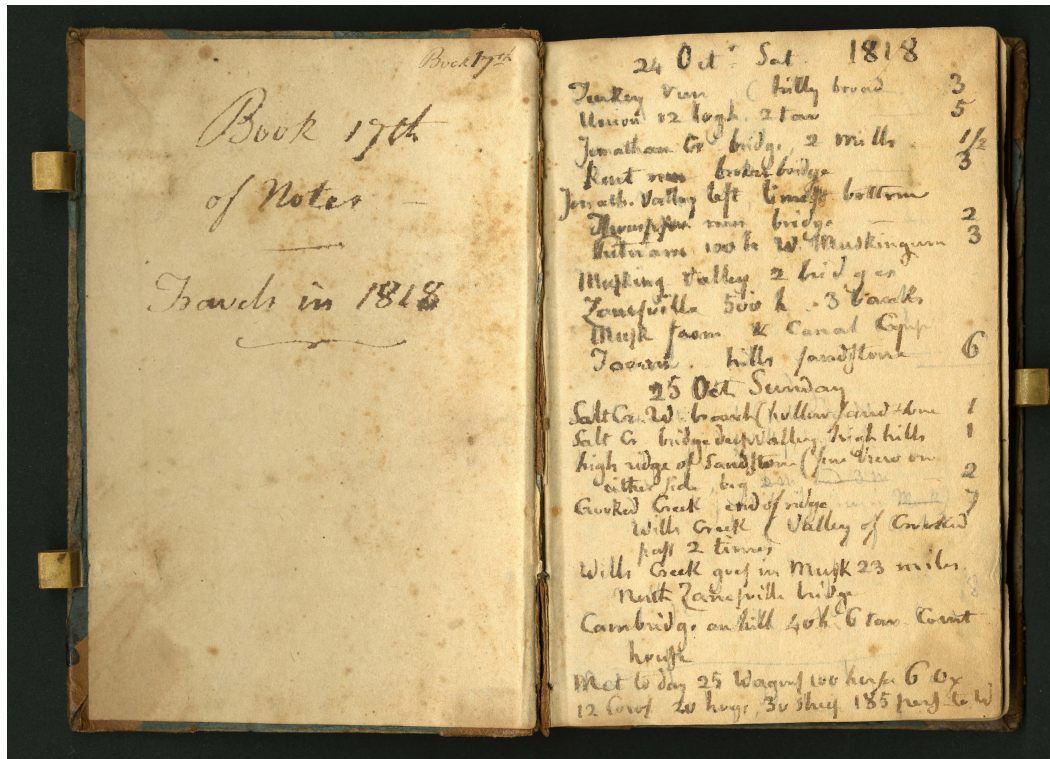 Book 17th
Book 17th
of Notes
Travels in 1818
24 Oct. Sat. 1818
Turkey run ( hilly broad 3
Union 12 logh. 2 tav 5
Jonathan Cr. bridge, 2 mills 1/2
Kent run broken bridge 3
Jonath. Valley left, limest bottom
run bridge 2
Putnam 100 h W. Muskingum 3
Musking Valley 2 bridges
Zanesville 500 h. 3 banks
Musk & Canal
Tavern. hills sandstone 6
25 Oct Sunday
Salt Cr. W. branch ( hollow sandstone 1
Salt Cr. bridge deep Valley, high hills 1
high ridge of Sandstone ( fine view on
either side, big 2
Crooked Creek end of ridge 7
Wills Creek ( Valley of Crooked
pass 2 times
Wills Creek goes in Musk 23 miles
North Zanesville bridge
Cambridge on hill 40 h. 6 tav. Court
house
Met to day 25 Wagons 100 horse 6 Ox
12 Cows 20 hogs, 30 sheep 185 pers. to W